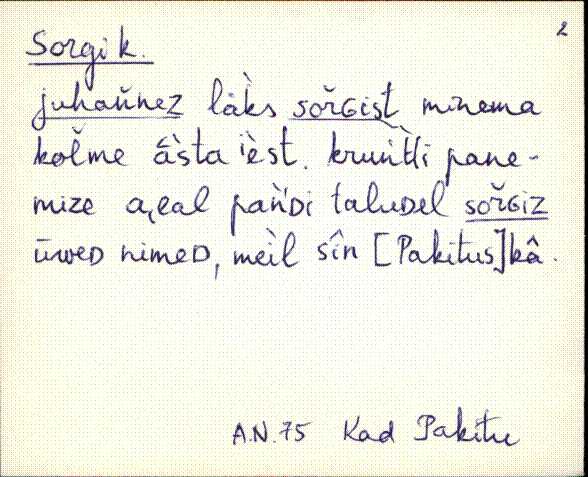 2
Sorgi k.
juhaňnez läks sořɢist minema
kořme ā̀sta iest. kruǹtli pane-
mize aᴊ̨al pańᴅi taluᴅel sořɢiz
ūweᴅ nimeᴅ, meìl sîn [Pakitus] kâ.
A.N. 75 Kad Pakitu